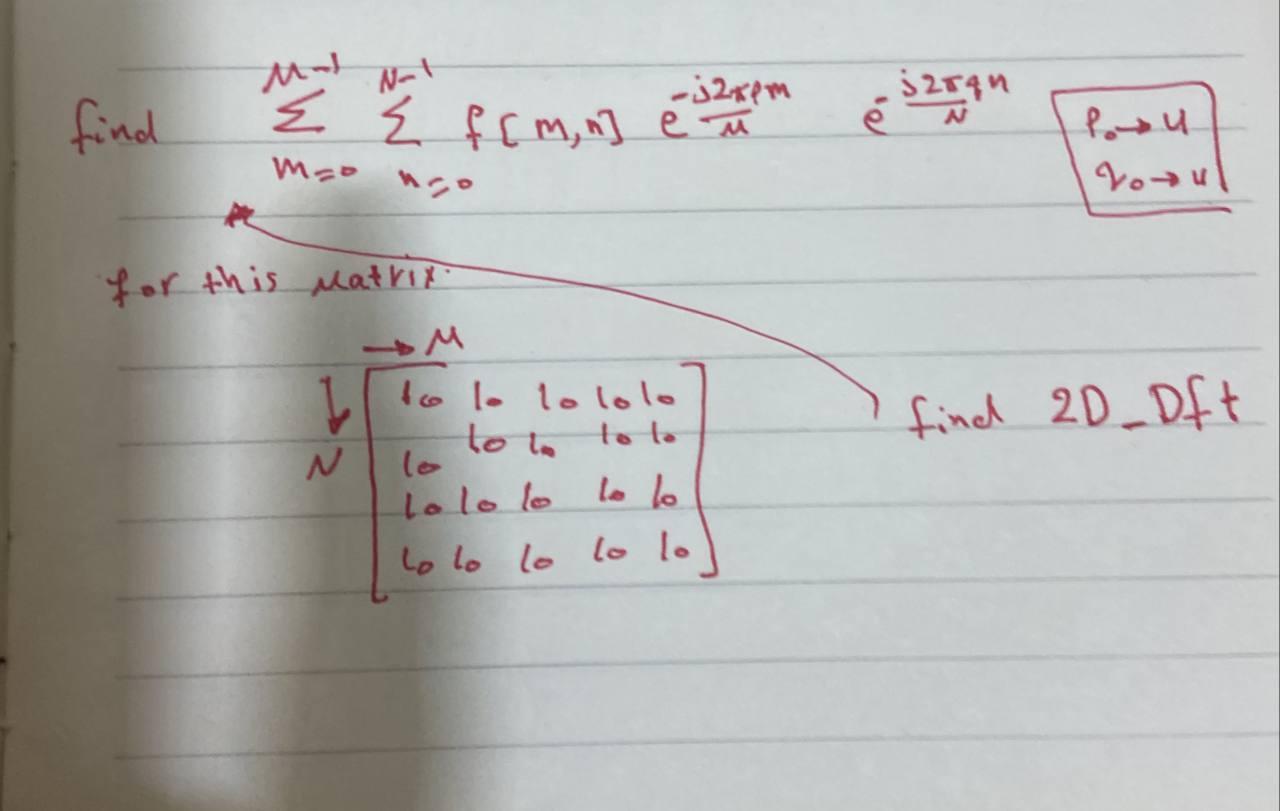 find M-1 Σ m=0 N-1 Σ n=0 f[m,n] e -j2πpm/M e -j2πqn/N
P₀→4
q₀→4
for this Matrix.
→ M
↓ N
10 10 10 10 10
10 10 10 10 10
10 10 10 10 10
10 10 10 10 10
find 2D_Dft